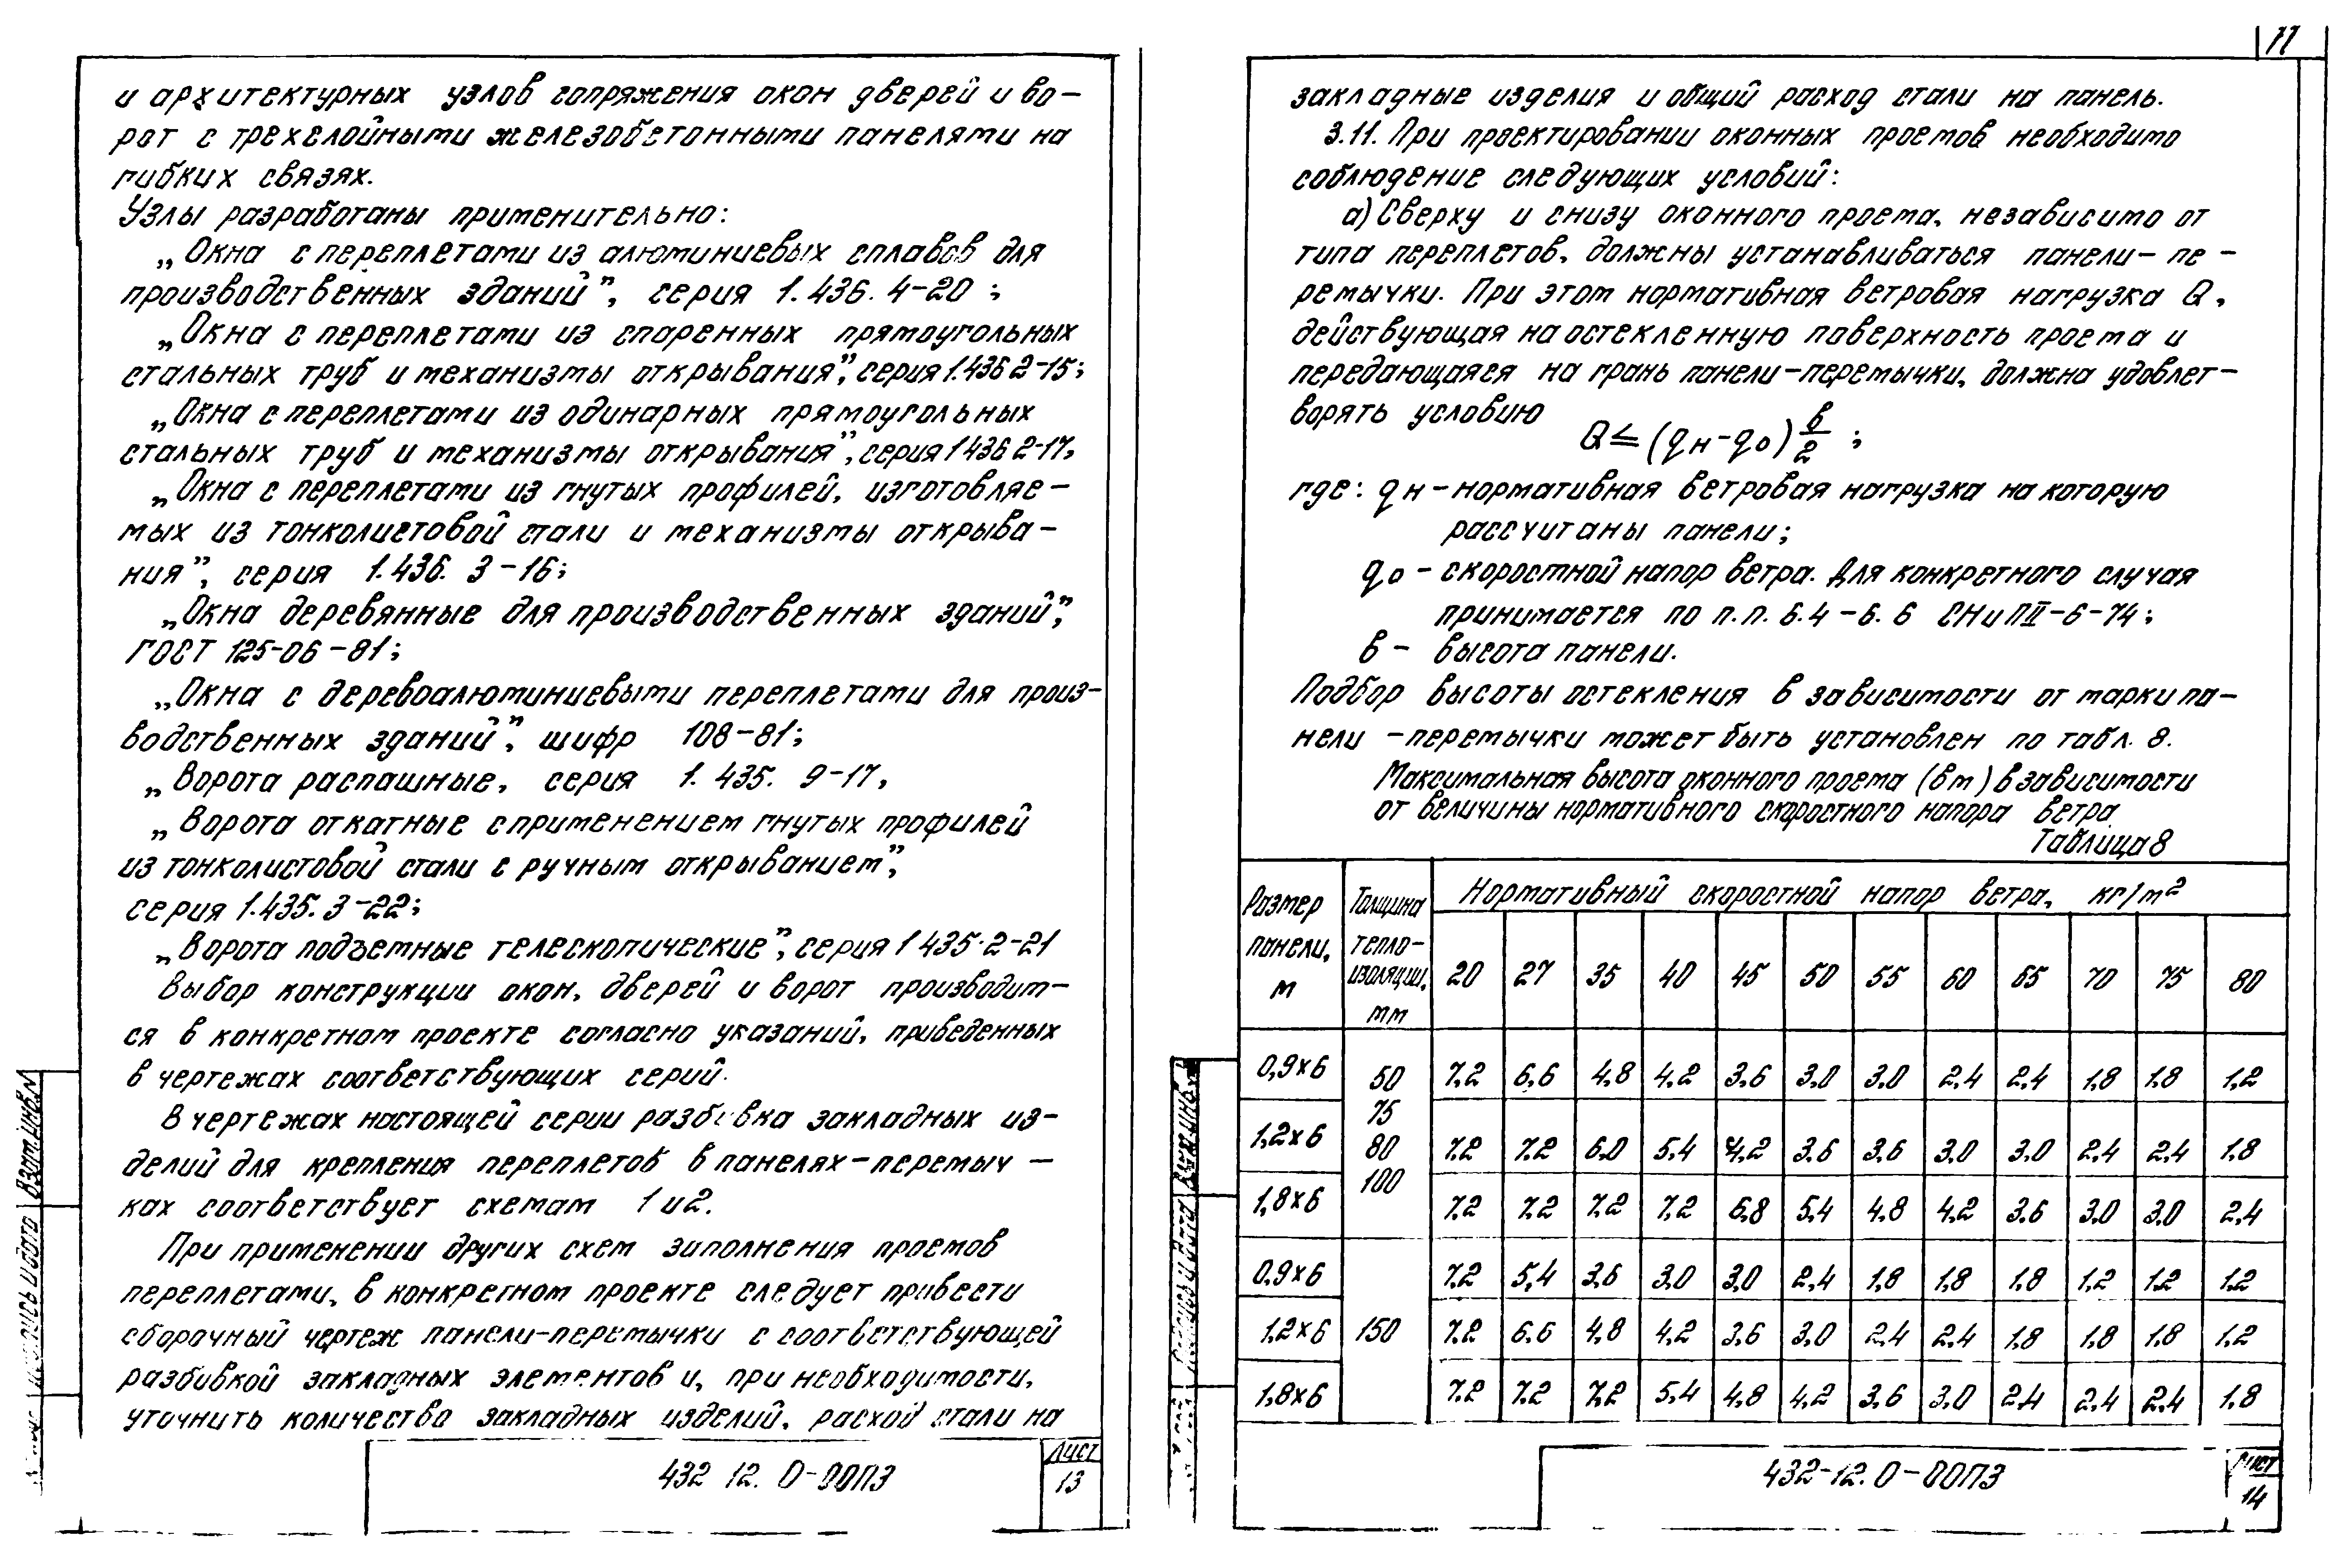 и архитектурных узлов сопряжения окон дверей и во-
рот с трехслойными железобетонными панелями на
гибких связях.
Узлы разработаны применительно:
„Окна с переплетами из алюминиевых сплавов для
производственных зданий”, серия 1.436.4-20;
„Окна с переплетами из спаренных прямоугольных
стальных труб и механизмы открывания”, серия 1.436 2-15;
„Окна с переплетами из одинарных прямоугольных
стальных труб и механизмы открывания”, серия 1 436 2-17,
„Окна с переплетами из гнутых профилей, изготовляе-
мых из тонколистовой стали и механизмы открыва-
ния”, серия 1.436. 3-16;
„Окна деревянные для производственных зданий”,
ГОСТ 125-06-81;
„Окна с деревоалюминиевыми переплетами для произ-
водственных зданий”, шифр 108-81;
„Ворота распашные, серия 1. 435. 9-17,
„Ворота откатные с применением гнутых профилей
из тонколистовой стали с ручным открыванием”,
серия 1.435.3-22;
„Ворота подъемные телескопические”, серия 1 435.2-21
Выбор конструкции окон, дверей и ворот производит-
ся в конкретном проекте согласно указаний, приведенных
в чертежах соответствующих серий.
В чертежах настоящей серии разбивка закладных из-
делий для крепления переплетов в панелях-перемыч-
ках соответствует схемам 1 и 2.
При применении других схем заполнения проемов
переплетами, в конкретном проекте следует привести
сборочный чертеж панели-перемычки с соответствующей
разбивкой закладных элементов и, при необходимости,
уточнить количество закладных изделий, расход стали на
432 12. 0-00ПЗ
Лист
13
Взам.инв.№
11
закладные изделия и общий расход стали на панель.
3.11. При проектировании оконных проемов необходимо
соблюдение следующих условий:
а) Сверху и снизу оконного проема, независимо от
типа переплетов, должны устанавливаться панели-пе-
ремычки. При этом нормативная ветровая нагрузка Q,
действующая на остекленную поверхность проема и
передающаяся на грань панели-перемычки, должна удовлет-
ворять условию
Q ≤ (qн-qо) в/2 ;
где: qн-нормативная ветровая нагрузка на которую
рассчитаны панели;
qо - скоростной напор ветра. Для конкретного случая
принимается по п.п. 6.4-6.6 СНиП II-6-74;
в - высота панели.
Подбор высоты остекления в зависимости от марки па-
нели-перемычки может быть установлен по табл. 8.
Максимальная высота оконного проема (в м) в зависимости
от величины нормативного скоростного напора ветра
Таблица 8
Размер панели, м | Толщина теплоизоляции, мм | Нормативный скоростной напор ветра, кг/м²
20 27 35 40 45 50 55 60 65 70 75 80
0,9х6 | 50 75 80 100 | 7.2 6,6 4,8 4,2 3,6 3,0 3,0 2,4 2,4 1,8 1,8 1,2
1,2х6 7.2 7.2 6,0 5,4 4,2 3,6 3,6 3,0 3,0 2,4 2,4 1,8
1,8х6 7,2 7,2 7,2 7,2 6,8 5,4 4,8 4,2 3,6 3,0 3,0 2,4
0,9х6 | 150 | 7,2 5,4 3,6 3,0 3,0 2,4 1,8 1,8 1,8 1,2 1,2 1,2
1,2х6 7,2 6.6 4,8 4,2 3,6 3,0 2,4 2,4 1,8 1,8 1,8 1,2
1,8х6 7,2 7,2 7,2 5,4 4,8 4,2 3,6 3,0 2,4 2,4 2,4 1,8
432-12.0-00ПЗ
Лист
14